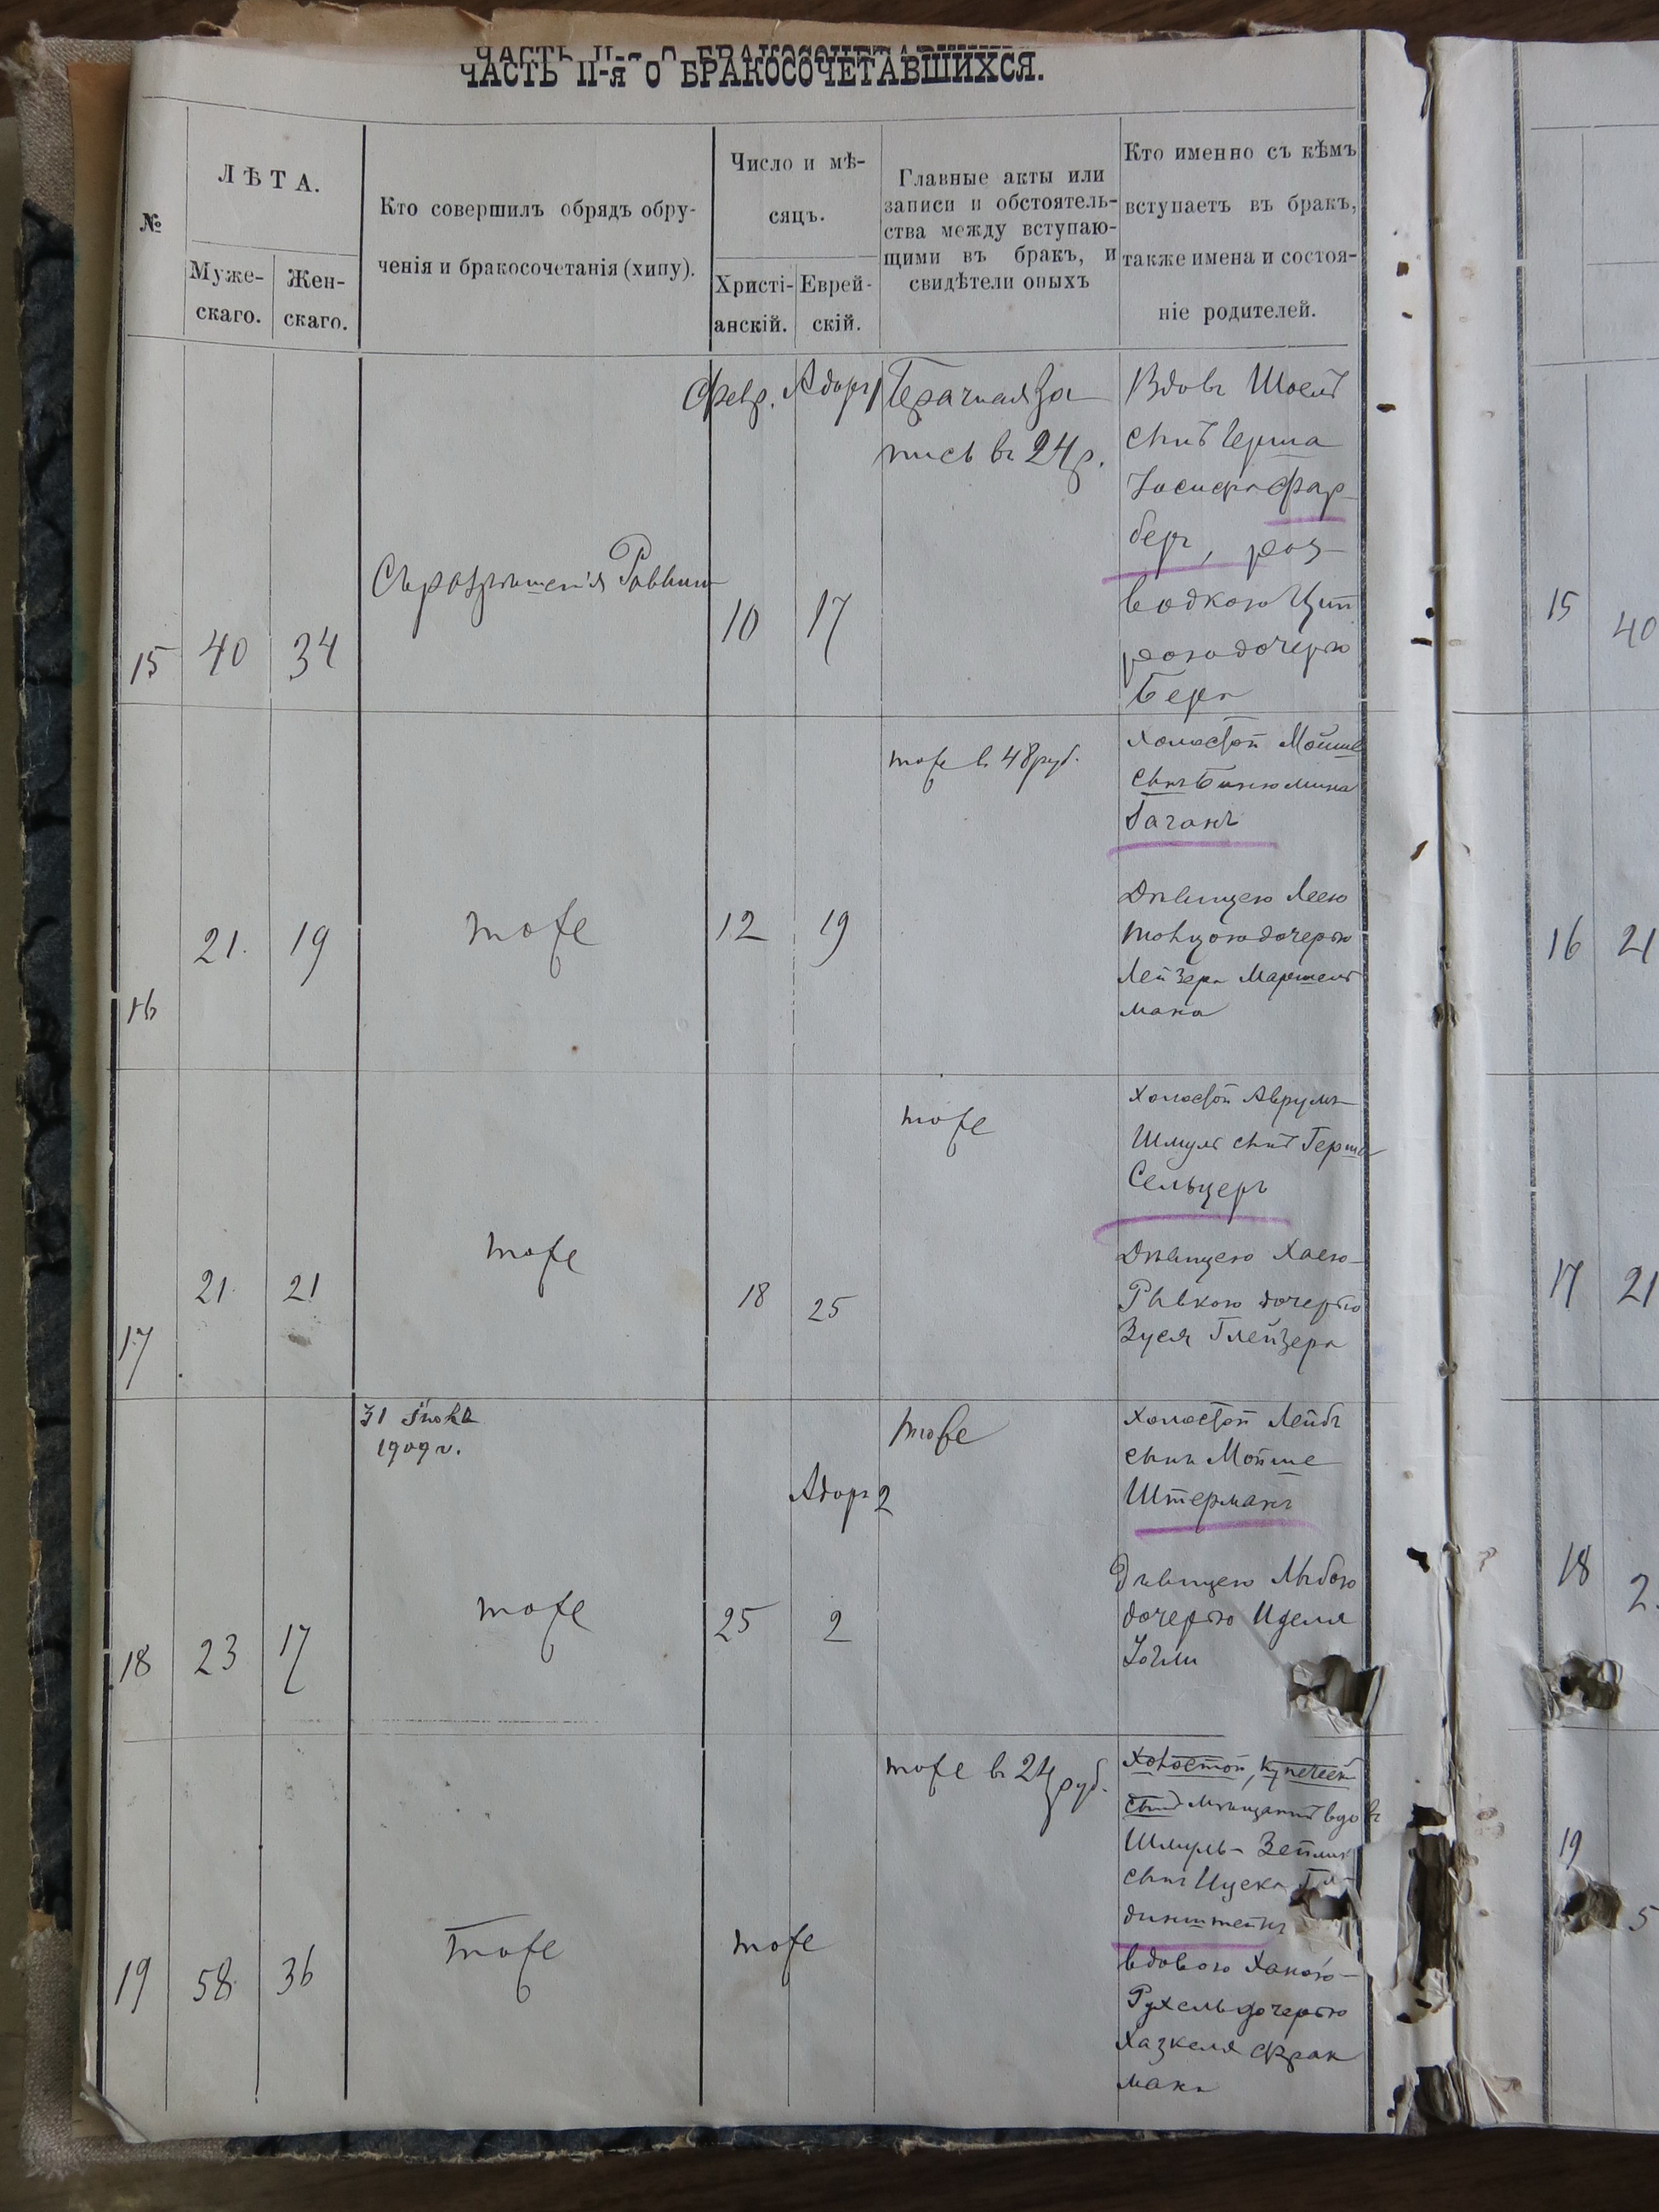 ЧАСТЬ II-я О БРАКОСОЧЕТАВШИХСЯ.
№
ЛѢТА.
Муже-
скаго.
Жен-
скаго.
Кто совершилъ обрядъ обру-
ченія и бракосочетанія (хипу).
Число и мѣ-
сяцъ.
Христі-
анскій.
Еврей-
скій.
Главные акты или
записи и обстоятель-
ства между вступаю-
щими въ бракъ, и
свидѣтели оныхъ
Кто именно съ кѣмъ
вступаетъ въ бракъ,
также имена и состоя-
ніе родителей.
15
40
34
Съ разрѣшенія Раввина
Февр.
10
Адаръ 1
17
Брачная за
пись въ 24 р.
Вдовъ
сынъ Герша
Іосифа Фар-
беръ, раз-
водкою Цип
рою дочерью
Бера
16
21.
19
тоже
12
19
тоже в 48 руб.
холостой Мойше
сынъ Бинюмина
Гаганъ
Дѣвицею Леею
дочерью
Лейзера
мана
17
21.
21
тоже
18
25
тоже
холостой Аврумъ-
Шмуль сынъ Герша
Сельцеръ
Дѣвицею Хаею-
Ривкою дочерью
Зуся Глейзера
18
23
17
31
1909 г.
тоже
25
Адаръ 2
2
тоже
холостой Лейбъ
сынъ Мойше
Штерманъ
Дѣвицею Либою
дочерью Иделя
19
58.
36
тоже
тоже
тоже в 24 руб.
холостой, купеческ
сынъ мѣщанинъ вдовъ
Шмуль-
сынъ Ицека
динштейнъ
вдовою Ханою-
Рухель дочерью
Хазкеля Фрак
мана
15
40
16
21
17
21
18
2
19
5